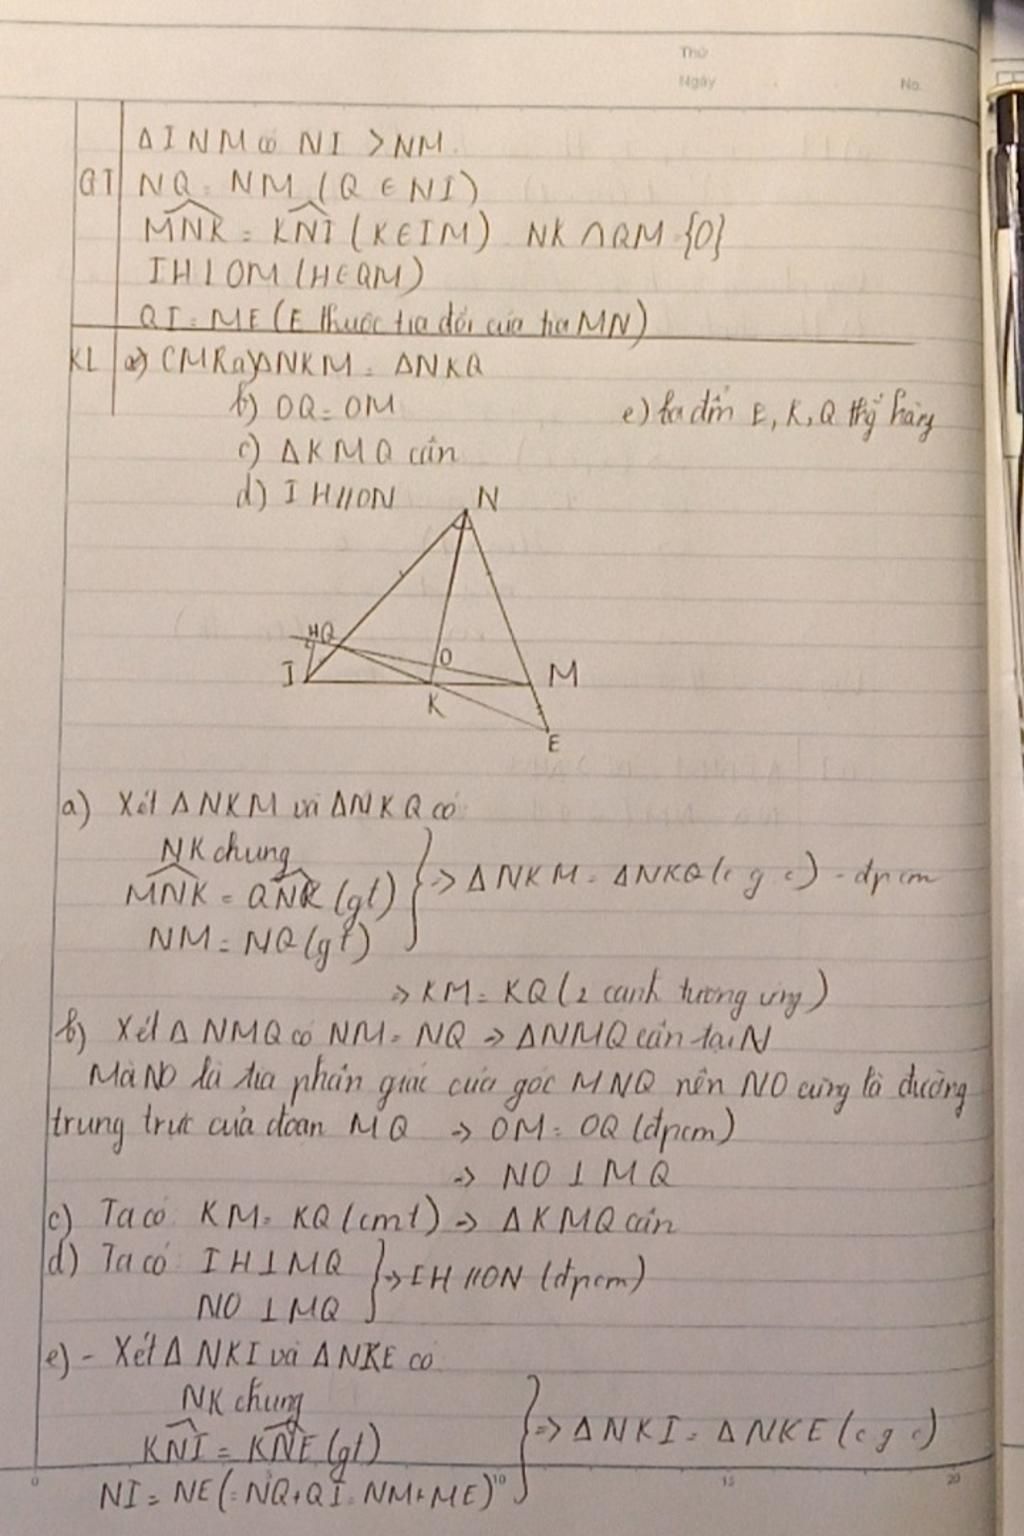 Thứ
Ngày No.
Δ INM có NI > NM.
GT NQ = NM (Q ∈ NI)
MNK = KNI (K ∈ IM) NK ∩ QM = {O}
IH ⊥ OM (H ∈ QM)
QI = ME (E thuộc tia đối của tia MN)
KL a) CMR a) ΔNKM = ΔNKQ
b) OQ = OM e) ba điểm E, K, Q thẳg hàng
c) ΔKMQ cân
d) IH // ON
N
HQ
O
I M
K
E
a) Xét ΔNKM và ΔNKQ có
NK chung
MNK = QNK (gt) } => ΔNKM = ΔNKQ (c g c) - đpcm
NM = NQ (gt)
=> KM = KQ (2 cạnh tương ứng)
b) Xét ΔNMQ có NM = NQ => ΔNMQ cân tại N
Mà NO là tia phân giác của góc MNQ nên NO cũng là đường
trung trực của đoạn MQ => OM = OQ (đpcm)
=> NO ⊥ MQ
c) Ta có KM = KQ (cmt) => ΔKMQ cân
d) Ta có IH ⊥ MQ } => IH // ON (đpcm)
NO ⊥ MQ
e) - Xét Δ NKI và ΔNKE có
NK chung
KNI = KNE (gt) } => ΔNKI = ΔNKE (c g c)
0 10 15 20
NI = NE (= NQ + QI = NM + ME)